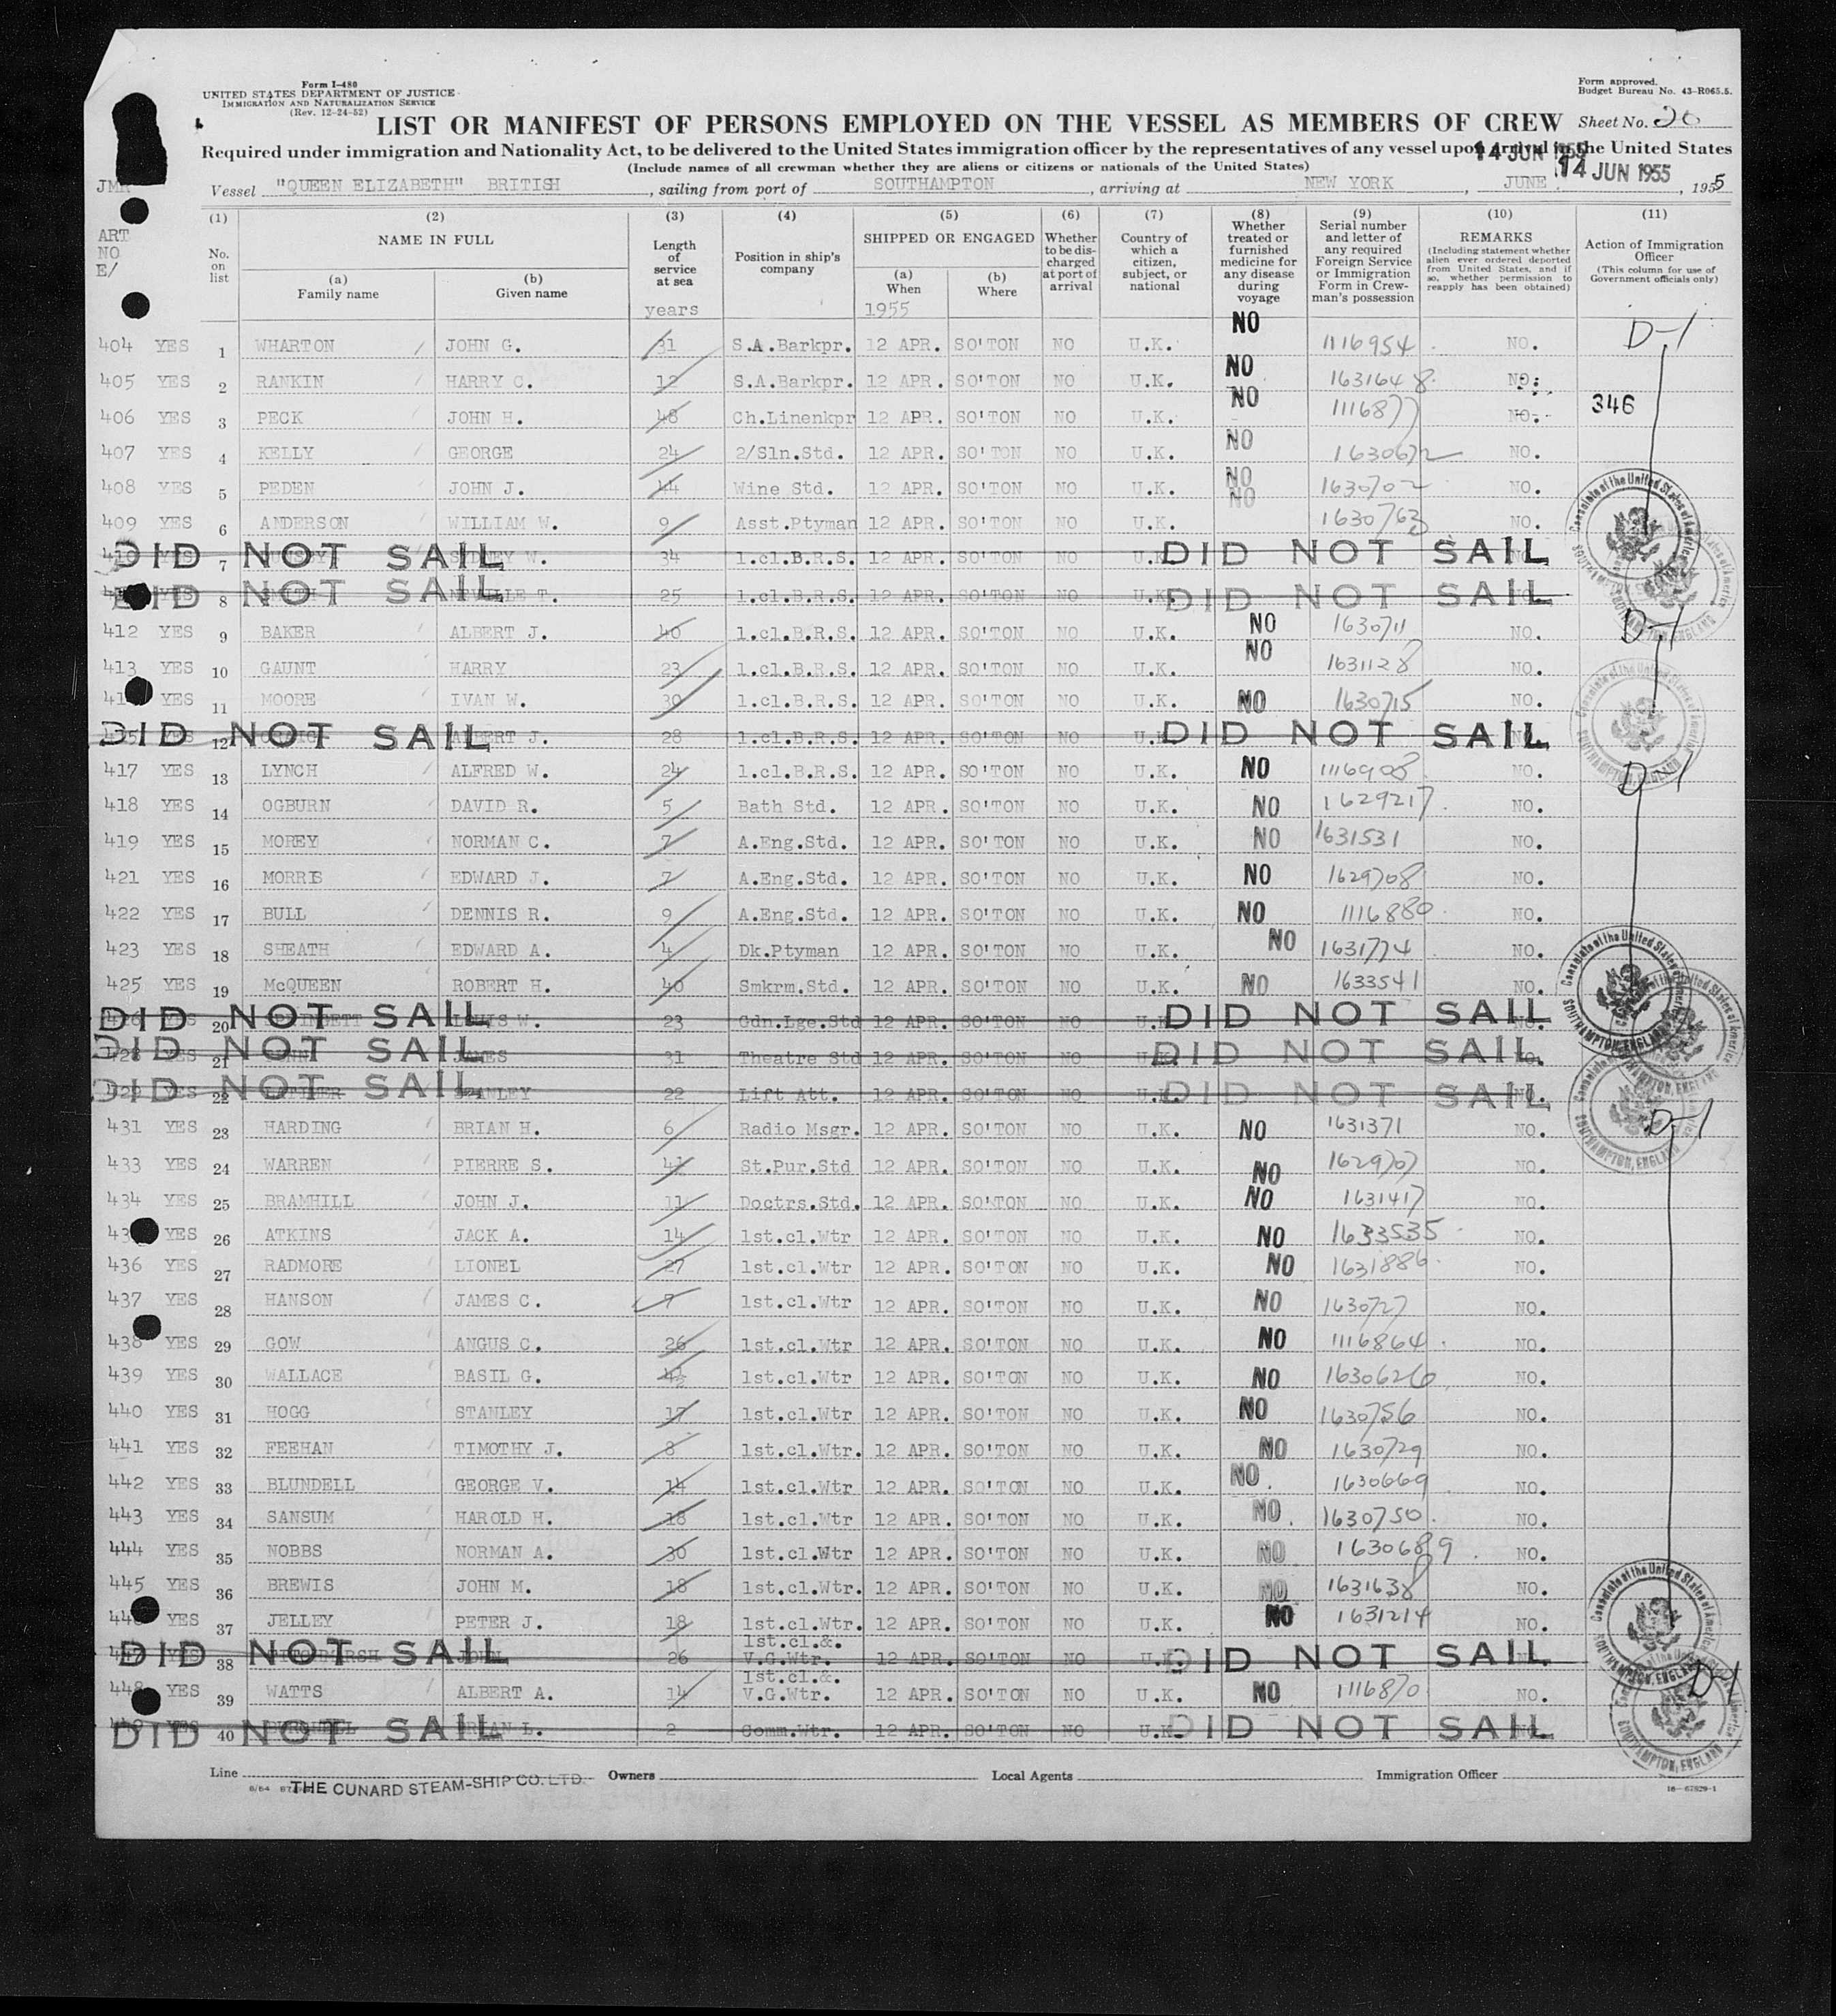 Form I-480
UNITED STATES DEPARTMENT OF JUSTICE
IMMIGRATION AND NATURALIZATION SERVICE
(Rev. 12-24-52)
Form approved.
Budget Bureau No. 43-R065.5.
LIST OR MANIFEST OF PERSONS EMPLOYED ON THE VESSEL AS MEMBERS OF CREW Sheet No. 20
Required under immigration and Nationality Act, to be delivered to the United States immigration officer by the representatives of any vessel upon arrival in the United States
14 JUN 1955
(Include names of all crewman whether they are aliens or citizens or nationals of the United States)
14 JUN 1955
Vessel "QUEEN ELIZABETH" BRITISH, sailing from port of SOUTHAMPTON, arriving at NEW YORK, JUNE, 1955
ART
NO
E/
(1) No. on list
(2) NAME IN FULL
(a) Family name
(b) Given name
(3) Length of service at sea
years
(4) Position in ship's company
(5) SHIPPED OR ENGAGED
(a) When
1955
(b) Where
(6) Whether to be discharged at port of arrival
(7) Country of which a citizen, subject, or national
(8) Whether treated or furnished medicine for any disease during voyage
(9) Serial number and letter of any required Foreign Service or Immigration Form in Crewman's possession
(10) REMARKS
(Including statement whether alien ever ordered deported from United States, and if so, whether permission to reapply has been obtained)
(11) Action of Immigration Officer
(This column for use of Government officials only)
404 YES 1 WHARTON JOHN G. 31 S.A.Barkpr. 12 APR. SO'TON NO U.K. NO 1116954 NO. D-1
405 YES 2 RANKIN HARRY C. 12 S.A.Barkpr. 12 APR. SO'TON NO U.K. NO 1631648 NO.
406 YES 3 PECK JOHN H. 48 Ch.Linenkpr 12 APR. SO'TON NO U.K. NO 1116877 NO. 346
407 YES 4 KELLY GEORGE 24 2/Sln.Std. 12 APR. SO'TON NO U.K. NO 1630672 NO.
408 YES 5 PEDEN JOHN J. 44 Wine Std. 12 APR. SO'TON NO U.K. NO 1630702 NO.
409 YES 6 ANDERSON WILLIAM W. 9 Asst.Ptyman 12 APR. SO'TON NO U.K. NO 1630763 NO.
410 7 DID NOT SAIL W. 34 1.cl.B.R.S. 12 APR. SO'TON NO U.K. DID NOT SAIL
8 DID NOT SAIL T. 25 1.cl.B.R.S. 12 APR. SO'TON NO U.K. DID NOT SAIL
412 YES 9 BAKER ALBERT J. 40 1.cl.B.R.S. 12 APR. SO'TON NO U.K. NO 1630711 NO. D-1
413 YES 10 GAUNT HARRY 23 1.cl.B.R.S. 12 APR. SO'TON NO U.K. NO 1631128 NO.
YES 11 MOORE IVAN W. 30 1.cl.B.R.S. 12 APR. SO'TON NO U.K. NO 1630715 NO.
12 DID NOT SAIL ALBERT J. 28 1.cl.B.R.S. 12 APR. SO'TON NO U.K. DID NOT SAIL
417 YES 13 LYNCH ALFRED W. 24 1.cl.B.R.S. 12 APR. SO'TON NO U.K. NO 1116908 NO. D-1
418 YES 14 OGBURN DAVID R. 5 Bath Std. 12 APR. SO'TON NO U.K. NO 1629217 NO.
419 YES 15 MOREY NORMAN C. 7 A.Eng.Std. 12 APR. SO'TON NO U.K. NO 1631531 NO.
421 YES 16 MORRIS EDWARD J. 7 A.Eng.Std. 12 APR. SO'TON NO U.K. NO 1629708 NO.
422 YES 17 BULL DENNIS R. 9 A.Eng.Std. 12 APR. SO'TON NO U.K. NO 1116880 NO.
423 YES 18 SHEATH EDWARD A. 4 Dk.Ptyman 12 APR. SO'TON NO U.K. NO 1631774 NO.
425 YES 19 McQUEEN ROBERT H. 40 Smkrm.Std. 12 APR. SO'TON NO U.K. NO 1633541 NO.
20 DID NOT SAIL W. 23 Gdn.Lge.Std 12 APR. SO'TON NO U.K. DID NOT SAIL
428 21 DID NOT SAIL JAMES 31 Theatre Std 12 APR. SO'TON NO U.K. DID NOT SAIL
429 YES 22 DID NOT SAIL STANLEY 22 Lift Att. 12 APR. SO'TON NO U.K. DID NOT SAIL
431 YES 23 HARDING BRIAN H. 6 Radio Msgr. 12 APR. SO'TON NO U.K. NO 1631371 NO. D-1
433 YES 24 WARREN PIERRE S. 41 St.Pur.Std 12 APR. SO'TON NO U.K. NO 1629707 NO.
434 YES 25 BRAMHILL JOHN J. 11 Doctrs.Std. 12 APR. SO'TON NO U.K. NO 1631417 NO.
YES 26 ATKINS JACK A. 14 1st.cl.Wtr 12 APR. SO'TON NO U.K. NO 1633535 NO.
436 YES 27 RADMORE LIONEL 27 1st.cl.Wtr 12 APR. SO'TON NO U.K. NO 1631886 NO.
437 YES 28 HANSON JAMES C. 7 1st.cl.Wtr 12 APR. SO'TON NO U.K. NO 1630727 NO.
438 YES 29 GOW ANGUS C. 26 1st.cl.Wtr 12 APR. SO'TON NO U.K. NO 1116864 NO.
439 YES 30 WALLACE BASIL G. 1st.cl.Wtr 12 APR. SO'TON NO U.K. NO 1630626 NO.
440 YES 31 HOGG STANLEY 17 1st.cl.Wtr 12 APR. SO'TON NO U.K. NO 1630756 NO.
441 YES 32 FEEHAN TIMOTHY J. 8 1st.cl.Wtr. 12 APR. SO'TON NO U.K. NO 1630729 NO.
442 YES 33 BLUNDELL GEORGE V. 14 1st.cl.Wtr 12 APR. SO'TON NO U.K. NO 1630669 NO.
443 YES 34 SANSUM HAROLD H. 18 1st.cl.Wtr 12 APR. SO'TON NO U.K. NO 1630750 NO.
444 YES 35 NOBBS NORMAN A. 30 1st.cl.Wtr 12 APR. SO'TON NO U.K. NO 1630689 NO.
445 YES 36 BREWIS JOHN M. 18 1st.cl.Wtr. 12 APR. SO'TON NO U.K. NO 1631638 NO.
YES 37 JELLEY PETER J. 18 1st.cl.Wtr. 12 APR. SO'TON NO U.K. NO 1631214 NO.
38 DID NOT SAIL 26 1st.cl.&. V.G.Wtr. 12 APR. SO'TON NO U.K. DID NOT SAIL
448 YES 39 WATTS ALBERT A. 14 1st.cl.&. V.G.Wtr. 12 APR. SO'TON NO U.K. NO 1116870 NO. D-1
40 DID NOT SAIL L. 2 Comm.Wtr. 12 APR. SO'TON NO U.K. DID NOT SAIL
Consulate of the United States of America
SOUTHAMPTON, ENGLAND
Line THE CUNARD STEAM-SHIP CO. LTD. Owners Local Agents Immigration Officer
16-67829-1